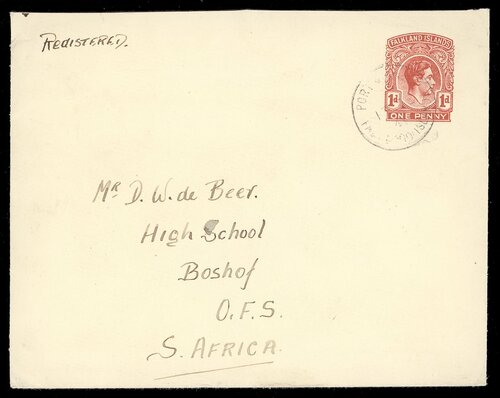 Registered.
FALKLAND ISLANDS
1d 1d
ONE PENNY
PORT
Mr D. W. de Beer.
High School
Boshof
O.F.S.
S. AFRICA.